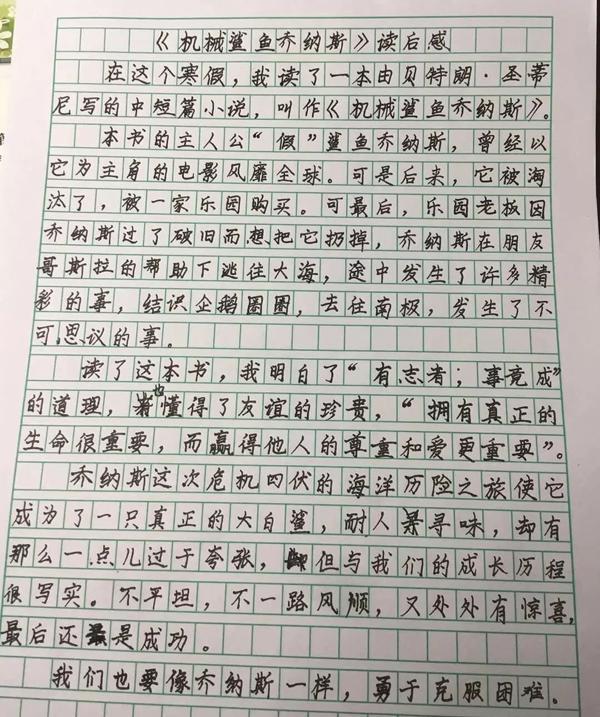 《机械鲨鱼乔纳斯》读后感
在这个寒假，我读了一本由贝特朗·圣蒂
尼写的中短篇小说，叫作《机械鲨鱼乔纳斯》。
本书的主人公“假”鲨鱼乔纳斯，曾经以
它为主角的电影风靡全球。可是后来，它被淘
汰了，被一家乐园购买。可最后，乐园老板因
乔纳斯过了破旧而想把它扔掉，乔纳斯在朋友
哥斯拉的帮助下逃往大海，途中发生了许多精
彩的事，结识企鹅圈圈，去往南极，发生了不
可思议的事。
读了这本书，我明白了“有志者；事竟成”
的道理，也懂得了友谊的珍贵，“拥有真正的
生命很重要，而赢得他人的尊重和爱更重要”。
乔纳斯这次危机四伏的海洋历险之旅使它
成为了一只真正的大白鲨，耐人寻味，却有
那么一点儿过于夸张，但与我们的成长历程
很写实。不平坦，不一路风顺，又处处有惊喜，
最后还是成功。
我们也要像乔纳斯一样，勇于克服困难。